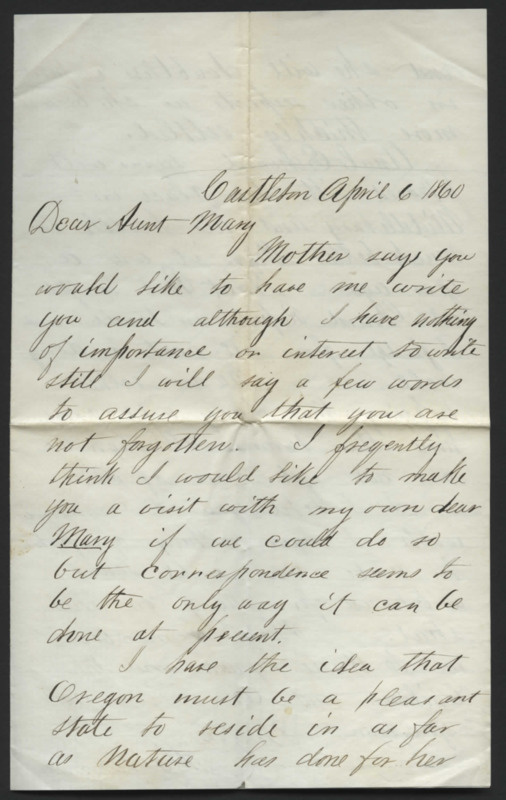 Castleton April 6 1860
Dear Aunt Mary
Mother says you
would like to have me write
you and although I have nothing
of importance or interest to write
still I will say a few words
to assure you that you are
not forgotten. I freqently
think I would like to make
you a visit with my own dear
Mary if we could do so
but correspondence seems to
be the only way it can be
done at present.
I have the idea that
Oregon must be a pleasant
state to reside in as far
as Nature has done for her